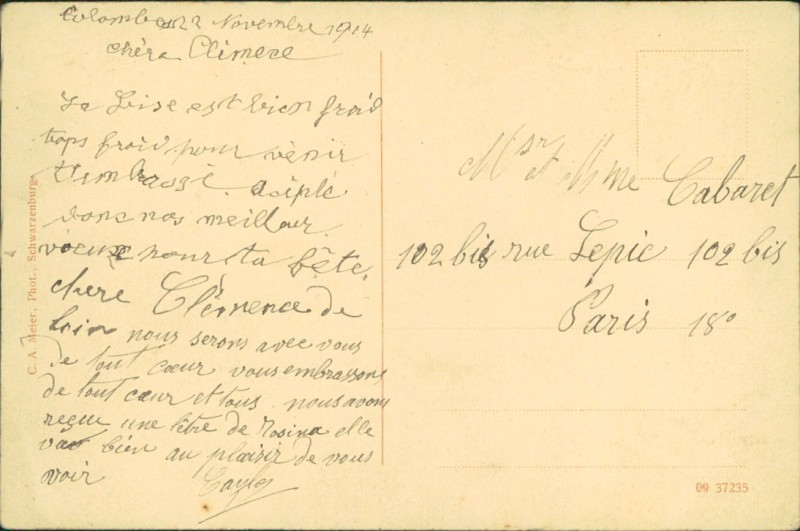 Colombes 22 Novembre 1914
chèra Climece
La Bise est bien froid
trops froid pour vènir
t'embrassé. asèplé
donc nos meilleur
voeux pour ta fête,
chere Clémence de
loin nous serons avec vous
de tout cœur vous embrassons
de tout cœur et tous. nous avons
reçue une lètre de Rosina elle
va bien au plaisir de vous
voir
Msr et Mme Cabaret
102 bis rue Lepic 102 bis
Paris 18°
C. A. Meier, Phot., Schwarzenburg.
09 37235